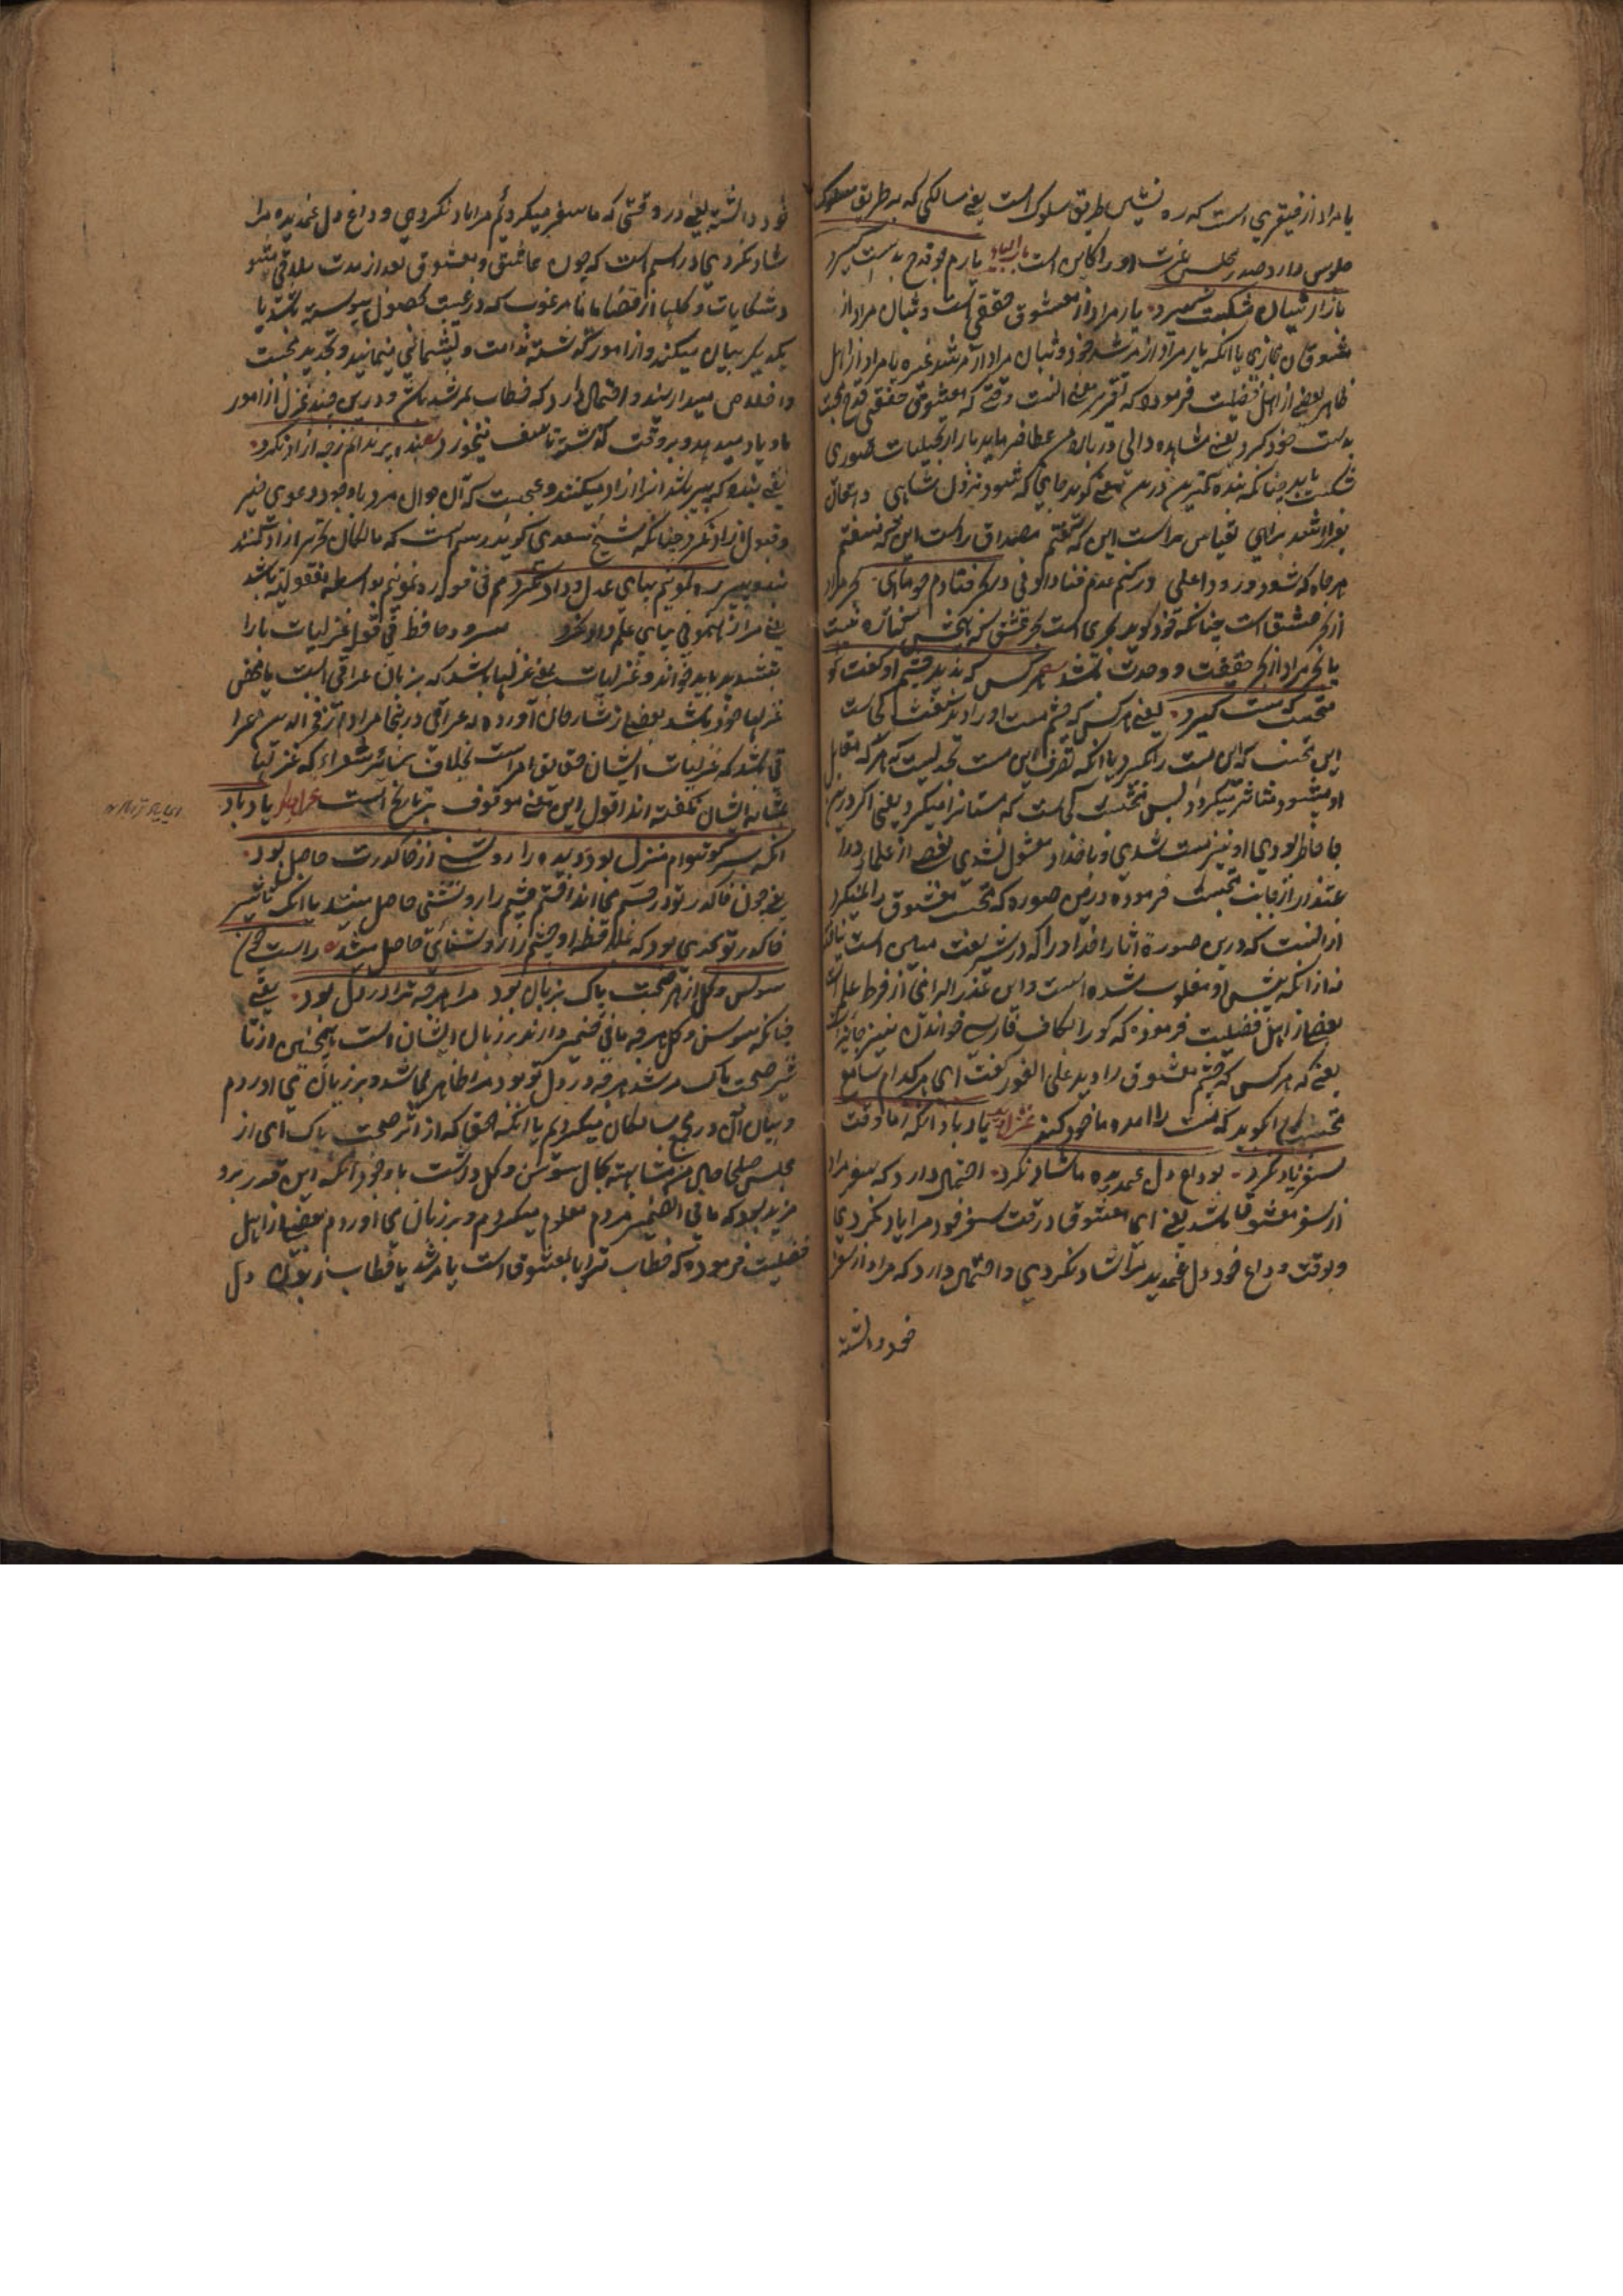 یا مراد از فقیری است که ره نشین طریق سلوک است یعنی سالکی که به طریق سلوک
جلوسی دارد صدر مجلس عزت او را کابس است باب الیاء یارم چو قدح بدست گیرد
بازار بتان شکست گیرد یار مراد از معشوق حقیقی است و بتان مراد از
معشوقان مجازی یا آنکه یار مراد از مرشد خود و بتان مراد از مرشد غیره یا مراد از اهل
ظاهر بعضی از اهل فضیلت فرموده که تقریر معنی آنست وقتی که معشوق حقیقی قدح محبت
بدست خود گیرد یعنی مشاهده دائی در باره من عطا فرماید بازار تجلیات صوری
شکست یابد چنانکه بنده کمترین درین معنی گوید جایی که شهود نزول شاهی
هرجا که شود ورود اعلی در بحر فتاده‌ام چو ماهی بحر مراد
از بحر عشق است چنانکه خود گوید بحری است بحر عشق که هیچش کناره نیست
یا بحر مراد از بحر حقیقت و وحدت باشد هرکس که بدید چشم او گفت کو
محتسب که مست گیرد یعنی هر کس که چشم مست او را دید گفت کجاست
این محتسب که این مست را گیرد یا آنکه تصرف این مست بحدیست که هر که مقابل
او میشود متاثر میگردد پس محتسب کجاست که مستانرا میگیرد یعنی اگر درین
جا حاضر بودی او نیز مست شدی و باخذ او مشغول نشدی بعضی از علما
اعتذار از جانب محتسب فرموده درین صوره که محتسب معشوق را نمیگیرد
از آنست که درین صورة آثار اخذ او را که در شریعت مبین است
نه از آنکه پیش او مغلوب شده است و این عذر الزامی از فرط علم است
بعضی از اهل فضیلت فرموده که کو را بکاف فارسی خواندن نیز جایز است
یعنی که هر کس که چشم معشوق را دید علی الفور گفت ای هر کدام سامع
محتسب را بگوید که مست را آمده ماخوذ کند غزل یاد باد آنکه ز ما وقت
سفر یاد نکرد بوداع دل غمدیده ما شاد نکرد احتمال دارد که سفر مراد
از سفر معشوق باشد یعنی ای معشوق در وقت سفر خود مرا یاد نکردی
و بوقت وداع خود دل غمدیده مرا شاد نکردی و احتمال دارد که مراد از سفر
خود داشته
خود داشته یعنی در وقتی که ما سفر میکردیم مرا یاد نکردی و وداع دل غمدیده مرا
شاد نکردی و رسم است که چون عاشق و معشوق بعد از مدت ملاقی میشوند
شکایات و گلها از قضا ما نامرغوب که در غیبت بحصول پیوسته باشد با
یکدیگر بیان میکنند و از امور گذشته ندامت و پشیمانی مینمایند و تجدید محبت
و اخلاص میدارند و احتمال دارد که خطاب بمرشد باشد و درین چند غزل از امور
ما و یاد میدهد و بر وقت گذشته تاسف میخورد بنده پیر ندانم ز چه آزاد نکرد
یعنی بنده که پیر باشد او را آزاد میکنند و عجبست که آن جوان مرد باوجود دعوی خیر
و قبول آزاد نکرد چنانکه شیخ سعدی گوید رسم است که مالکان تحریر آزاد کنند
بنده پیر ره نمونیم بپای علم داد نکرد
یعنی مرا رهنمونی بپای علم داد نکرد سرود حافظ فی قوله غزلیات یا را
بتشدید باید خواند و غزلیات یعنی غزلها باشد که بزبان عراقی است یا بعضی
غزلها خود باشد بعضی از شارحان آورده که عراقی در اینجا مراد از فخر الدین عرا
قی باشد که غزلیات ایشان حقایق آمیز است بخلاف سایر شعراء که غزلیات
عشاقه ایشان نگفته‌اند اقول این معنی موقوف بر تاریخ است غزل یاد باد
آنکه سر کوی توام منزل بود دیده را روشنی از خاک درت حاصل بود
یعنی چون خاک در تو در چشم می‌انداختم چشم را روشنی حاصل میشد یا آنکه تاثیر
خاک در تو بحدی بود که بملاحظه او چشم را روشنائی حاصل میشد راست چون
سوسن و گل از اثر صحبت پاک بر زبان بود مرا هر چه ترا در دل بود یعنی
چنانکه سوسن و گل هر چه ما فی ضمیر دارند بر زبان ایشان است همچنین از تا
ثیر صحبت پاک مرشد هر چه در دل تو بود مرا ظاهر می‌شد و بر زبان می آوردم
و بیان آن در مجمع سالکان میکردیم یا آنکه حقا که از اثر صحبت پاک ای از
مجلس صلحا حال من مشابهت بحال سوسن و گل داشت باوجود آنکه این قدر برو
مزید بود که ما فی الضمیر مردم معلوم میکردم و بر زبان می آوردم بعضی از اهل
فضیلت فرموده که خطاب ترا یا بمعشوق است یا مرشد یا خطاب دل